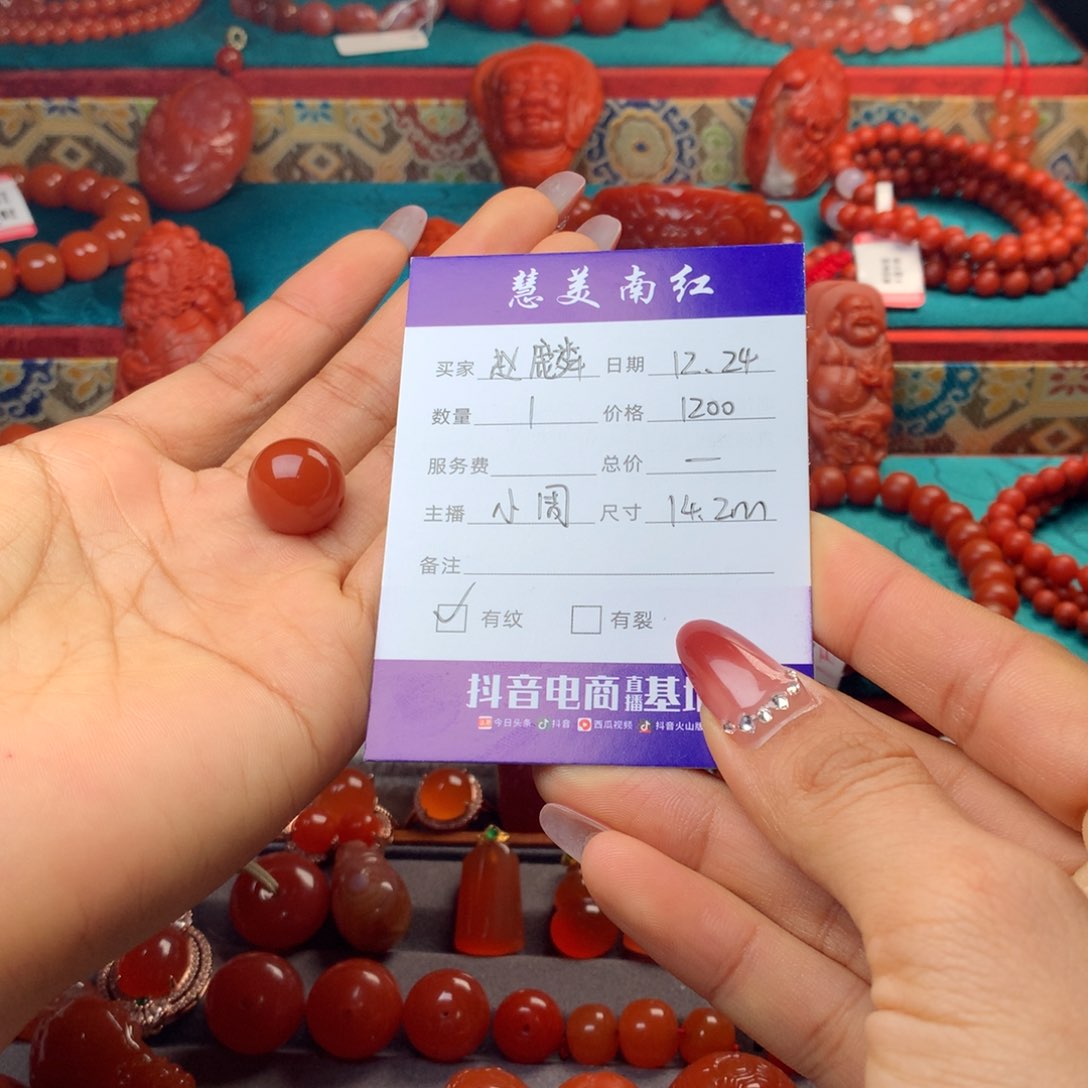 慧美南红
买家 赵麟 日期 12.24
数量 1 价格 1200
服务费 总价 一
主播 小周 尺寸 14.2m
备注
有纹 有裂
抖音电商直播基地
今日头条 抖音 西瓜视频 抖音火山版